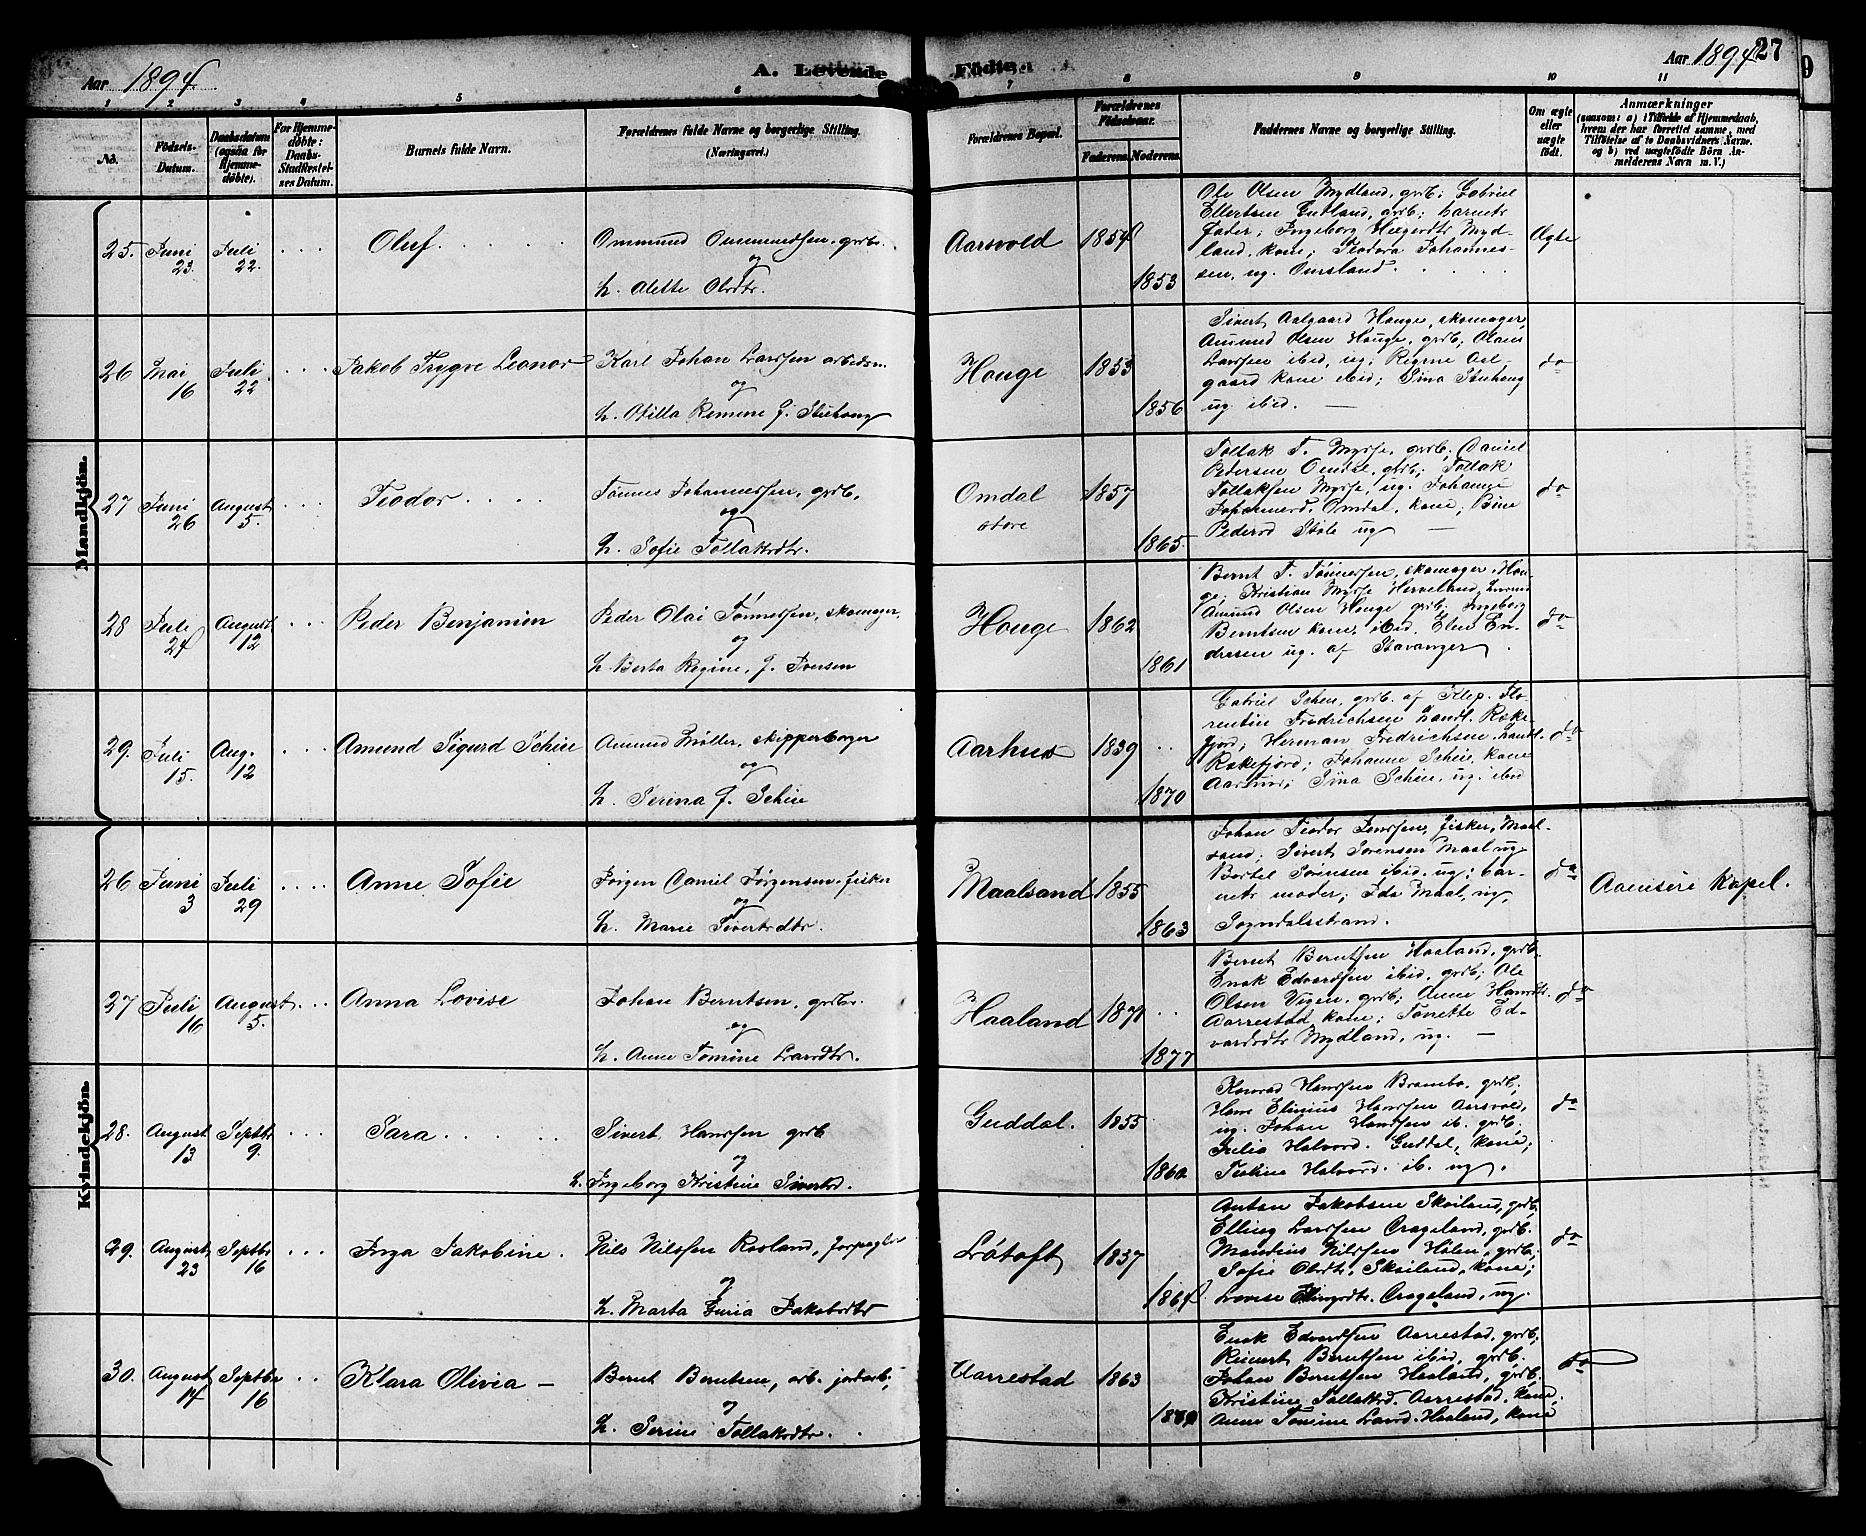 Aar 1894.
A. Levende
Födte
Aar 1894
27
1 2 3 4 5 6 7 8 9 10 11
No.
Födsels-Datum.
Daabsdatum (ogsaa for Hjemme-döbte).
For Hjemme-döbte: Daabs-Stadfæstel-ses Datum.
Barnets fulde Navn.
Forældrenes fulde Navne og borgerlige Stilling.
(Næringsvei.)
Forældrenes Bopæl.
Forældrenes Födselsaar.
Faderens. Moderens.
Faddernes Navne og borgerlige Stilling.
Om ægte eller uægte födt.
Anmærkninger
(saasom: a) i Tilfælde af Hjemmedaab,
hvem der har forrettet samme, med
Tilföielse af to Daabsvidners Navne.
og b) ved uægtefödte Börn An-
melderens Navn m. V.)
Mandkjön.
25. Juni 23. Juli 22. Oluf
Ommund Ommundsen, grdbr.
og
h. Alette Olsdtr.
Aarsvold 1854 1853
Ole Olsen Mydland, grdb; Gabriel
Ellertsen Eutland, grdb; barnets
Fader; Ingeborg Hægerdtr Myd-
land, kone; Teodora Johannes-
sen, ug. Omsland.
Ægte
26 Mai 16 Juli 22 Jakob Trygve Leonor
Karl Johan Larssen arbeidsm.
og
h. Otilla Remine J. Stuhaug
Houge 1853 1856
Sivert Aalgaard Houge, skomager,
Amund Olsen Houge, grdb; Olaus
Larssen ibid, ug; Regine Aal-
gaard kone ibid; Sina Stuhaug
ug ibid.
do
27 Juni 26 August 5. Teodor
Tönnes Johannessen, grdb.
og
h. Sofie Tollaksdtr.
Omdal store 1857 1865.
Tollak T. Mysse, grdb, Daniel
Pedersen Omdal, grdb; Tollak
Tollaksen Mysse, ug. Johanne
Johannesd. Omdal, kone; Sine
Pedersd Stöle ug
do
28 Juli 24 August 12 Peder Benjamin
Peder Olai Tönnessen, skomager,
og
h. Berta Regine, J. Iversen
Houge 1862 1861
Bernt T. Tönnessen, skomager, Hou-
ge; Kristian Mysse Herveland,
Amund Olsen Houge grdb; Ingeborg
Berntsen kone, ibid. Elen En-
dresen ug. af Stavanger
do
29. Juli 15. Aug. 12 Amund Sigurd Scheie
Amund Möller, skipperborger
og
h. Serina J. Scheie
Aarhus 1839 1870
Gabriel Scheie, grdb. af Klep. Flo-
rentin Fredrichsen handl. Ræke-
fjord; Herman Fredrichsen, handl.
Rækefjord; Johanne Scheie, kone
Aarhus; Sina Scheie, ug. ibid
do
Kvindekjön.
26 Juni 3 Juli 29 Anne Sofie
Jörgen Daniel Jörgensen, fisker
og
h. Marie Sivertsdtr.
Maalsand 1855 1863
Johan Teodor Jenssen, fisker, Maal-
sand; Sivert Sörensen Maal ug
Bertel Sörensen ibid. ug; bar-
nets moder; Ida Maal, ug,
Sogndalsstrand.
do Aaensire Kapel.
27 Juli 16 August 5. Anna Lovise
Johan Berntsen, grdbr.
og
h. Anne Tomine Larsdtr.
Haaland 1871 1877
Bernt Berntsen Haaland, grdb.
Enok Edvardsen ibid, grdb; Ole
Olsen Vigen, grdb; Anne Hansdtr.
Aarrestad, kone; Tonette Ed-
vardsdtr Mydland, ug.
do
28. August 13 Septbr 9. Sara
Sivert Hanssen grdb
og
h. Ingeborg Kristine Sivertsd.
Guddal. 1855 1860
Konrad Hanssen Brambo, grdb.
Hans Elinius Hanssen Aarsvold,
ug. Johan Hanssen ib. grdb.
Julia Halvord. Guddal, kone;
Teoline Halvord. ib. ug.
do
29. August 23 Septbr 16 Inga Jakobine.
Nils Nilssen Rosland, forpagter
og
h. Marta Guria Jakobsdtr
Lötoft 1837 1864
Anton Jakobsen Skoiland, grdb,
Elling Larssen Crageland, grdb.
Maudius Nilssen Hölen, grdb;
Sofie Olsdtr. Skoiland, kone;
Lovise Ellingsdtr. Crageland, ug.
do
30. August 17 Septbr 16 Klara Olivia
Bernt Berntsen, arb. jordarb,
og
h. Serine Tollaksdtr.
Aarrestad 1863
Enok Edvardsen Aarrestad, grdb;
Reinert Berntsen ibid, grdb.
Johan Berntsen Haaland, grdb,
Kristine Tollaksd. Aarrestad. kone,
Anne Tomine Larsd. Haaland, kone
do